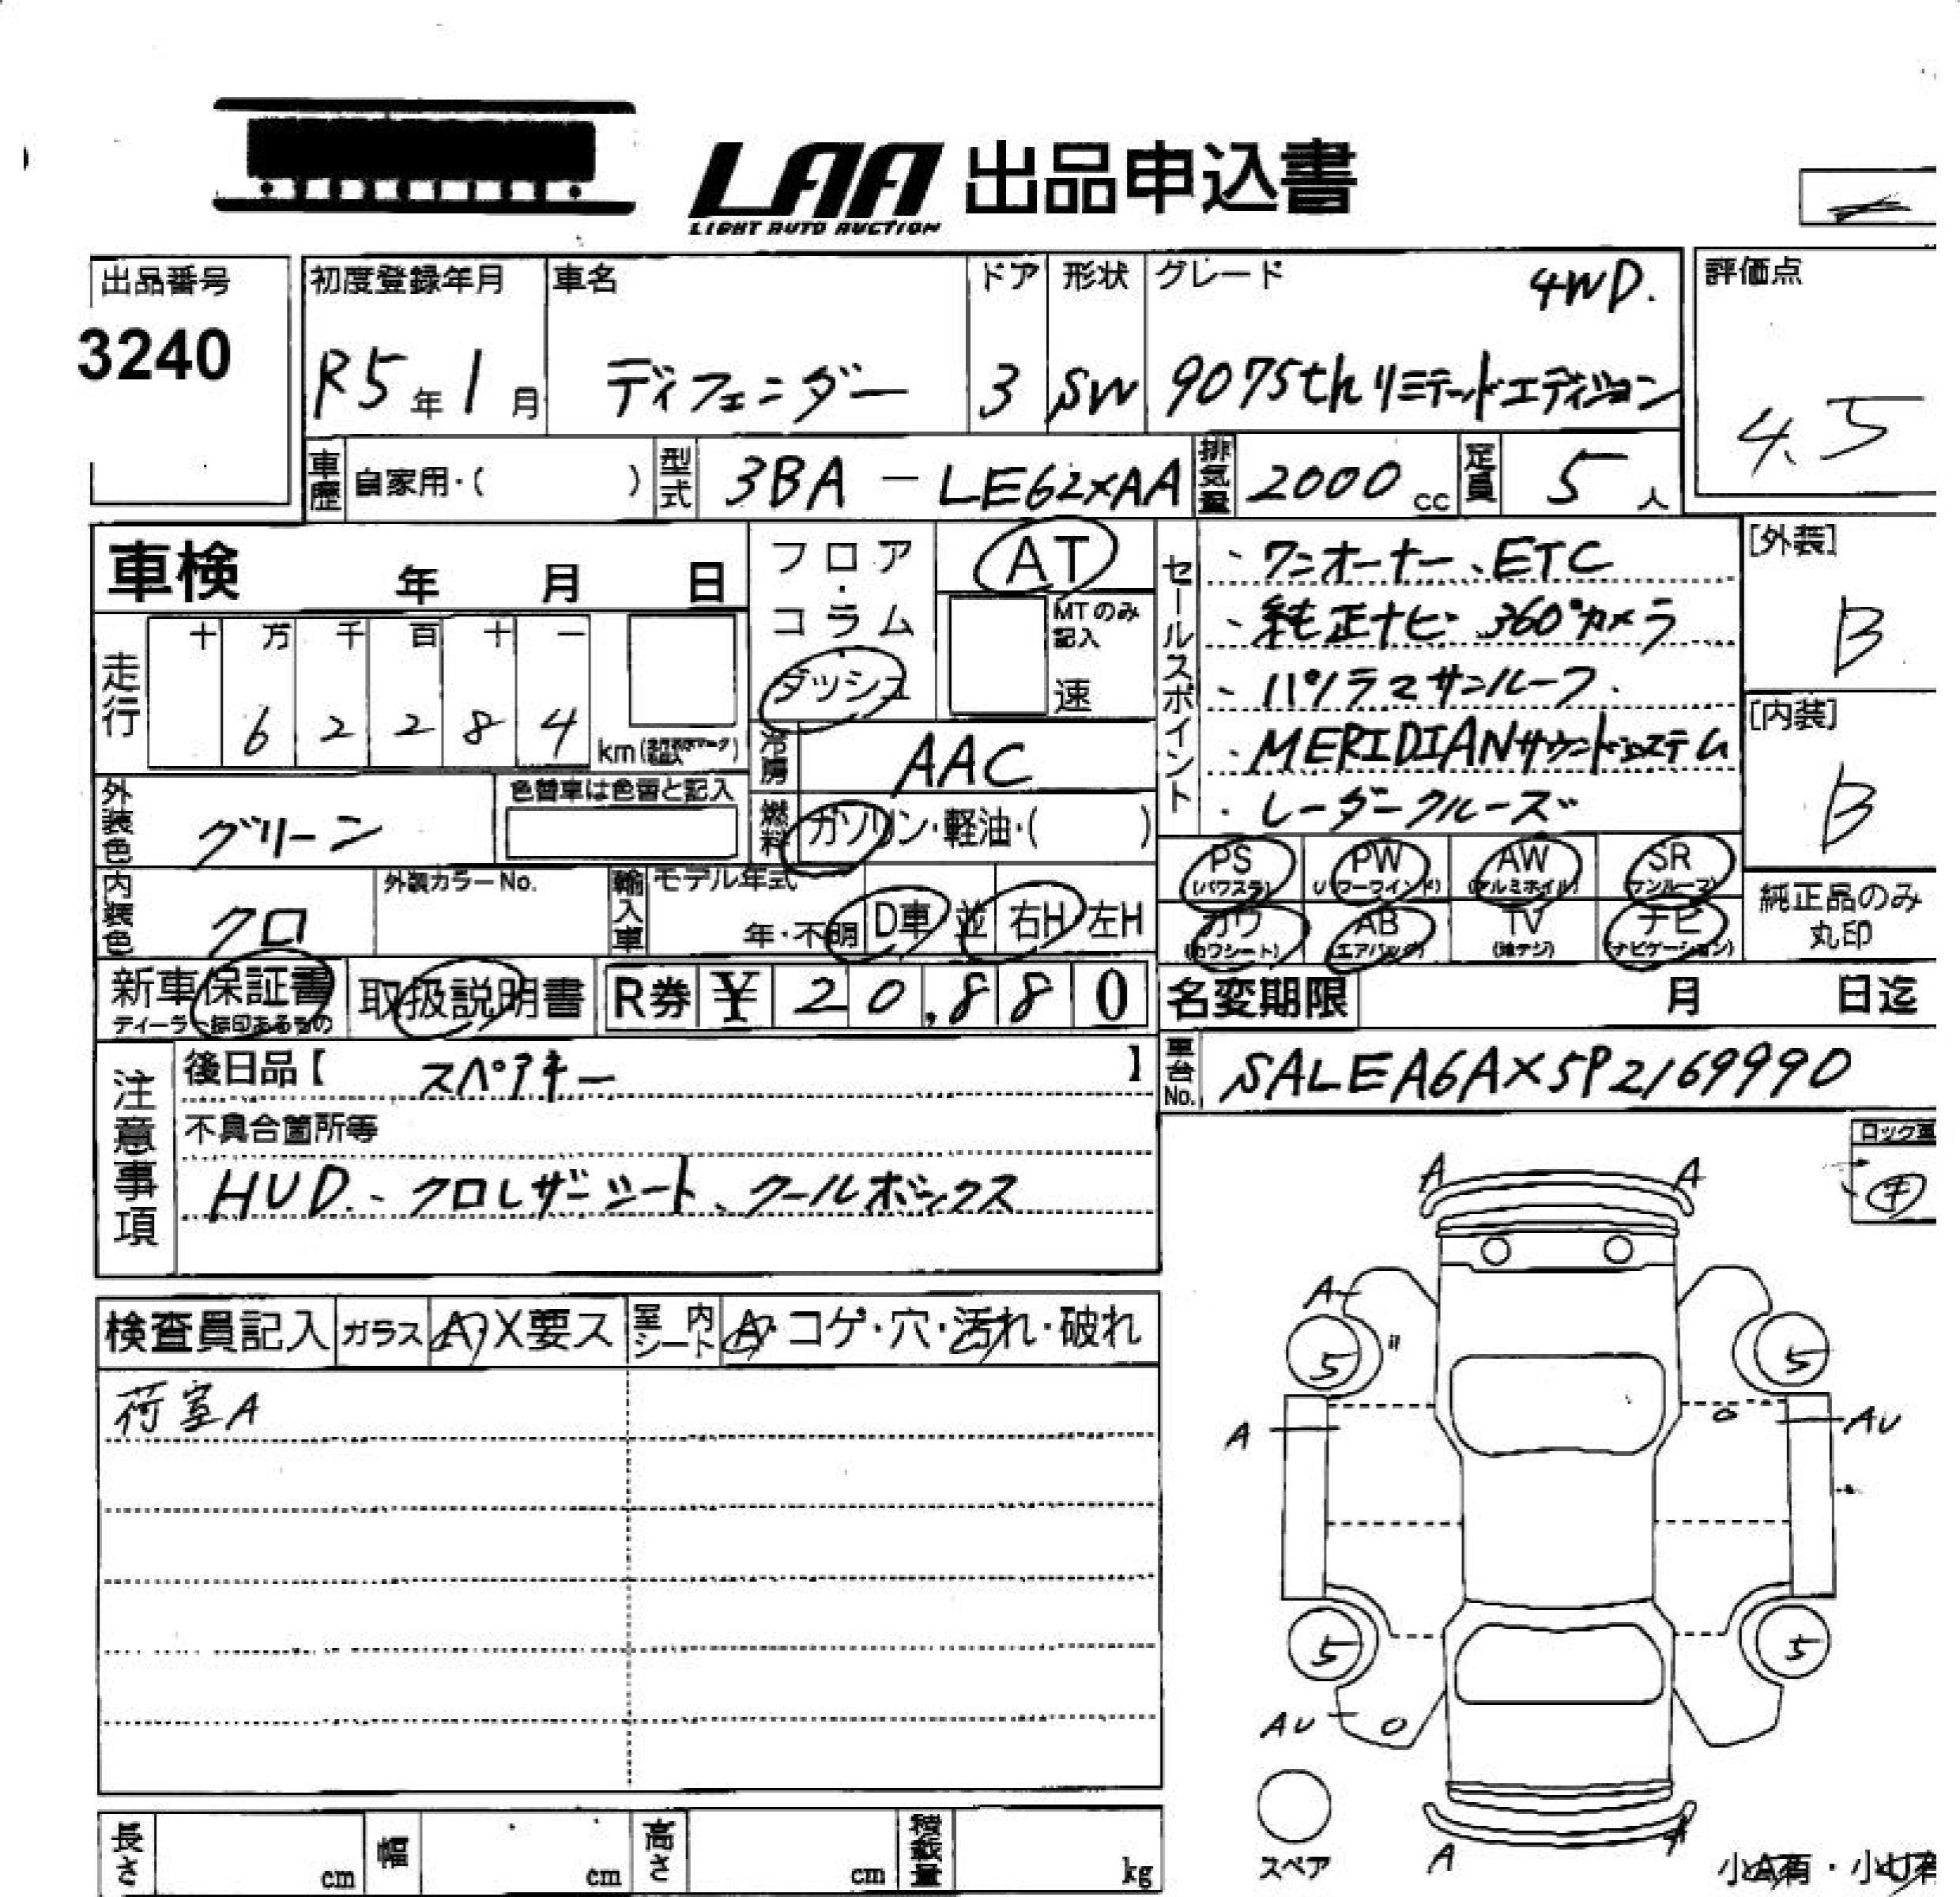 LAA 出品申込書
LIGHT AUTO AUCTION
出品番号 初度登録年月 車名 ドア 形状 グレード 4WD. 評価点
3240 R5年1月 ディフェンダー 3 SW 90 75th リミテッドエディション 4.5
車歴 自家用・( ) 型式 3BA - LE62XAA 排気量 2000cc 定員 5人
車検 年 月 日
フロア・コラム
ダッシュ
AT
MTのみ記入
速
走行 十 万 千 百 十 一
6 2 2 8 4 km
冷房 AAC
燃料 ガソリン・軽油・( )
外装色 グリーン 色替車は色替と記入
内装色 クロ 外装カラーNo. 輸入車 モデル年式 年・不明 D車 並 右H 左H
セールスポイント
・ワンオーナー、ETC
・純正ナビ 360°カメラ
・パノラマサンルーフ
・MERIDIANサウンドシステム
・レーダークルーズ
[外装]
B
[内装]
B
PS (パワステ) PW (パワーウインド) AW (アルミホイル) SR (サンルーフ)
カワ (カワシート) AB (エアバッグ) TV (地デジ) ナビ (ナビゲーション)
純正品のみ
丸印
新車保証書 取扱説明書 R券 ¥ 20,880
ディーラー捺印あるもの
名変期限 月 日迄
注意事項
後日品【 スペアキー 】
車台No. SALEA6AX5P2169990
不具合箇所等
HUD、クロレザーシート、クールボックス
ロック
検査員記入 ガラス A・X要ス 室内シート A・コゲ・穴・汚れ・破れ
荷室A
A A
A
5 " 5
A AU
5 5
AU
スペア
A A
小A有・小U有
長さ cm 幅 cm 高さ cm 積載量 kg